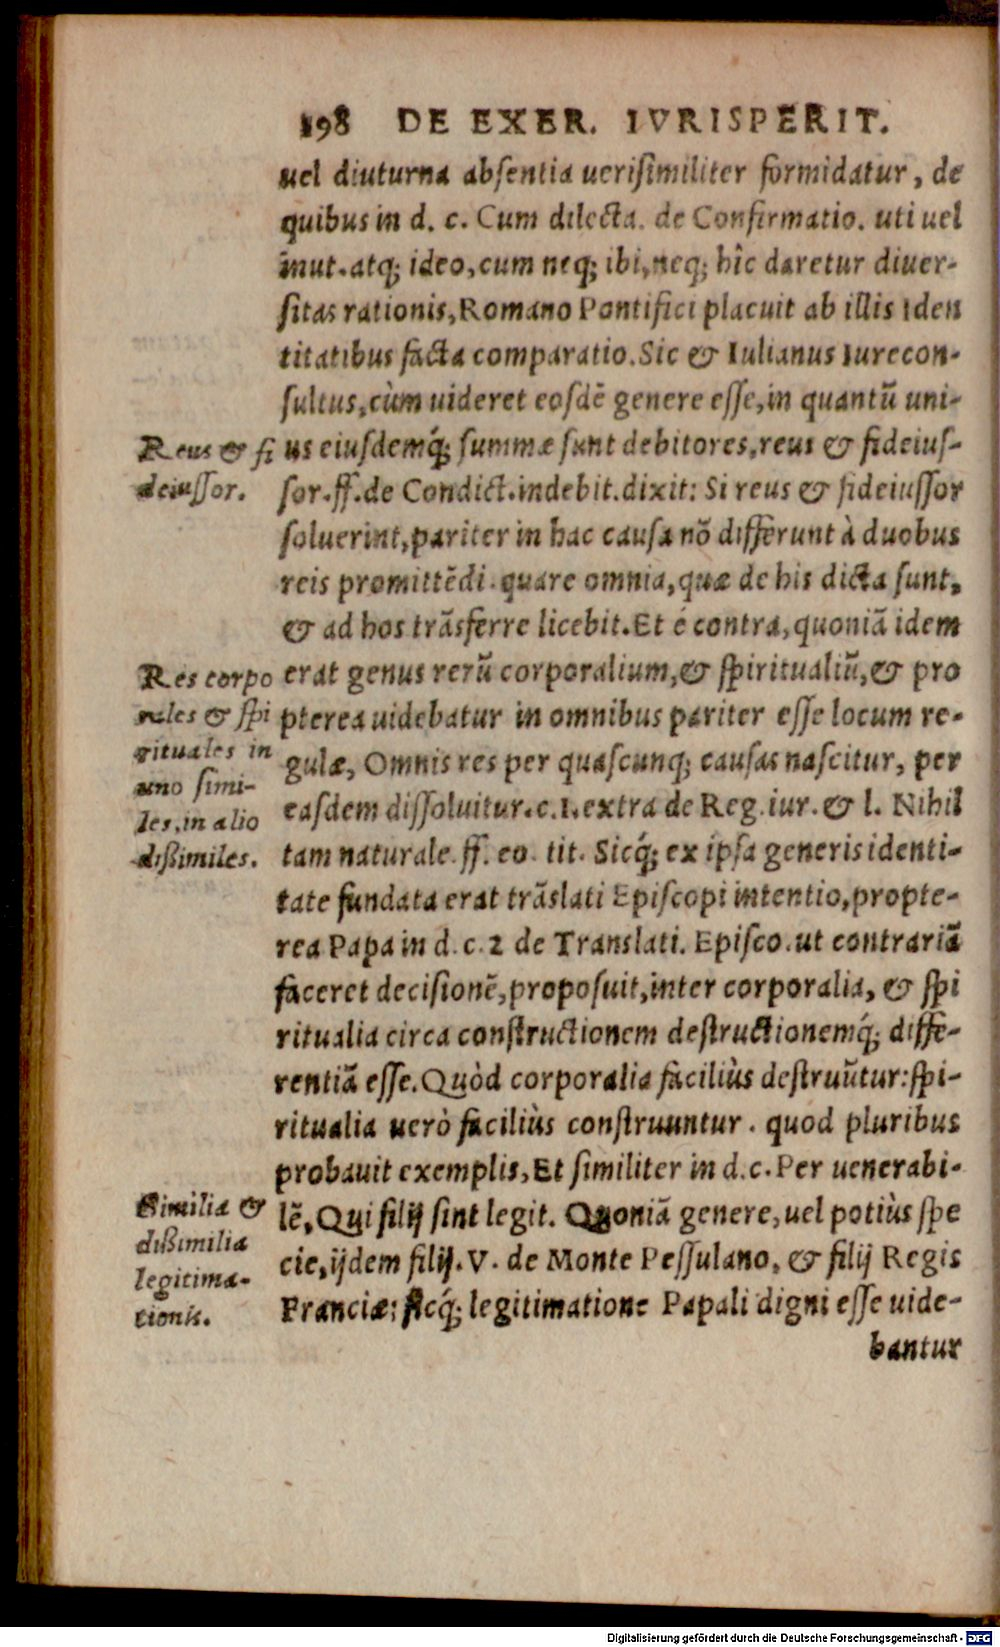 198 DE EXER. IVRISPERIT.
uel diuturna absentia uerisimiliter formidatur, de
quibus in d. c. Cum dilecta. de Confirmatio. uti uel
inut. atq; ideo, cum neq; ibi, neq; hîc daretur diuer-
sitas rationis, Romano Pontifici placuit ab illis iden
titatibus facta comparatio. Sic & Iulianus Iurecon-
sultus, cùm uideret eosdē genere esse, in quantū uni-
Reus & fi
deiussor.
us eiusdemq́; summæ sunt debitores, reus & fideius-
sor. ff. de Condict. indebit. dixit: Si reus & fideiussor
soluerint, pariter in hac causa nō differunt à duobus
reis promittēdi. quare omnia, quæ de his dicta sunt,
& ad hos trāsferre licebit. Et è contra, quoniā idem
Res corpo
rales & spi
rituales in
uno simi-
les, in alio
dißimiles.
erat genus rerū corporalium, & spiritualiū, & pro
pterea uidebatur in omnibus pariter esse locum re-
gulæ, Omnis res per quascunq; causas nascitur, per
easdem dissoluitur. c. 1. extra de Reg. iur. & l. Nihil
tam naturale. ff. eo. tit. Sicq́; ex ipsa generis identi-
tate fundata erat trāslati Episcopi intentio, propte-
rea Papa in d. c. 2 de Translati. Episco. ut contrariā
faceret decisionē, proposuit, inter corporalia, & spi
ritualia circa constructionem destructionemq́; diffe-
rentiā esse. Quòd corporalia faciliùs destruūtur: spi-
ritualia uerò faciliùs construuntur. quod pluribus
probauit exemplis, Et similiter in d. c. Per uenerabi-
Similia &
dißimilia
legitima-
tionis.
lē, Qui filij sint legit. Quoniā genere, uel potiùs spe
cie, ijdem filij. V. de Monte Pessulano, & filij Regis
Franciæ: sicq́; legitimatione Papali digni esse uide-
bantur
Digitalisierung gefördert durch die Deutsche Forschungsgemeinschaft - DFG